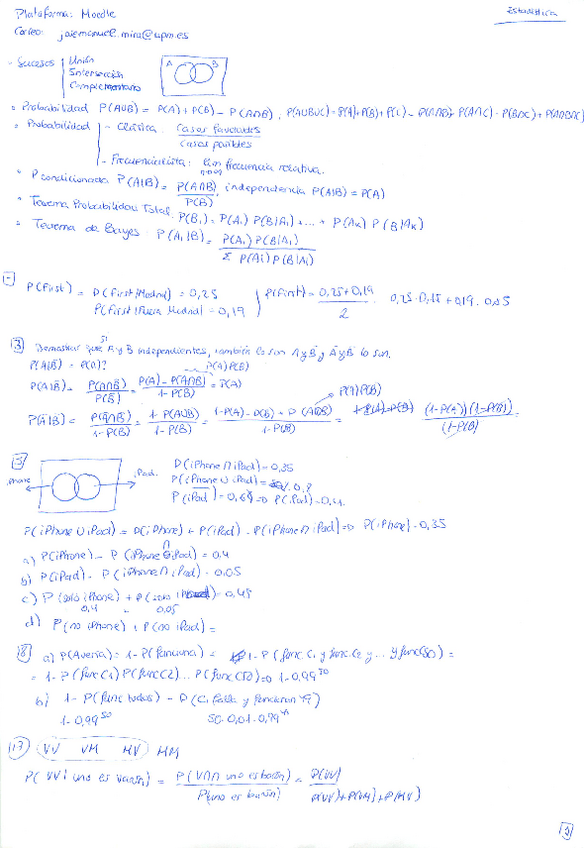 Estadística
Plataforma: Moodle
Correo: josemanuel.mira@upm.es
- Sucesos | Unión
Intersección
Complementario
A B
• Probabilidad P(A∪B) = P(A) + P(B) - P(A∩B), P(A∪B∪C) = P(A)+P(B)+P(C) - P(A∩B) - P(A∩C) - P(B∩C) + P(A∩B∩C)
• Probabilidad | - Clásica: Casos favorables
Casos posibles
- Frecuencialista: lim frecuencia relativa.
• P condicionada P(A|B) = P(A∩B) / P(B), independencia P(A|B) = P(A)
• Teorema Probabilidad Total: P(B) = P(A₁) P(B|A₁) + ... + P(Aₖ) P(B|Aₖ)
• Teorema de Bayes: P(A₁|B) = P(A₁) P(B|A₁)
Σ P(Ai) P(B|Ai)
P(First) = P(First|Madrid) = 0,25
P(First|Fuera Madrid) = 0,19
P(First) = 0,25 + 0,19 / 2
[3] Demostrar que si A y B independientes, también lo son
P(A|B̄) = P(A)?
P(A)P(B)
P(A|B̄) = P(A∩B̄) / P(B̄) = P(A) - P(A∩B) / 1 - P(B) = P(A)
P(A)P(B)
P(Ā|B̄) = P(Ā∩B̄) / 1-P(B) = 1-P(A∪B) / 1-P(B) = 1-P(A)-P(B)+P(A∩B) / 1-P(B) = (1-P(A))(1-P(B)) / (1-P(B)) =
[5] iPhone iPad
P(iPhone∩iPad) = 0,35
P(iPhone∪iPad) =
P(iPhone∪iPad) = P(iPhone) + P(iPad) - P(iPhone∩iPad) ⇒
a) P(iPhone) - P(iPhone∩iPad) = 0,4
b) P(iPad) - P(iPhone∩iPad) = 0,05
c) P(solo iPhone) + P(solo iPad) = 0,45
0,4 0,05
d) P(no iPhone) + P(no iPad) =
[8] a) P(Avería) = 1 - P(Func.C1 y func.C2 y ... y func C50) =
= 1 - P(func C1) P(func C2) ... P(func C50) ⇒ 1 - 0,99⁵⁰
b) 1 - P(func todos) - P(Ci falla y funcionan 49)
1 - 0,99⁵⁰ 50·0,01·0,99⁴⁹
VV VM MV MM
P(VV | uno es varón) = P(VV∩ uno es varón) / P(uno es varón) = P(VV) / P(VV)+P(VM)+P(MV)